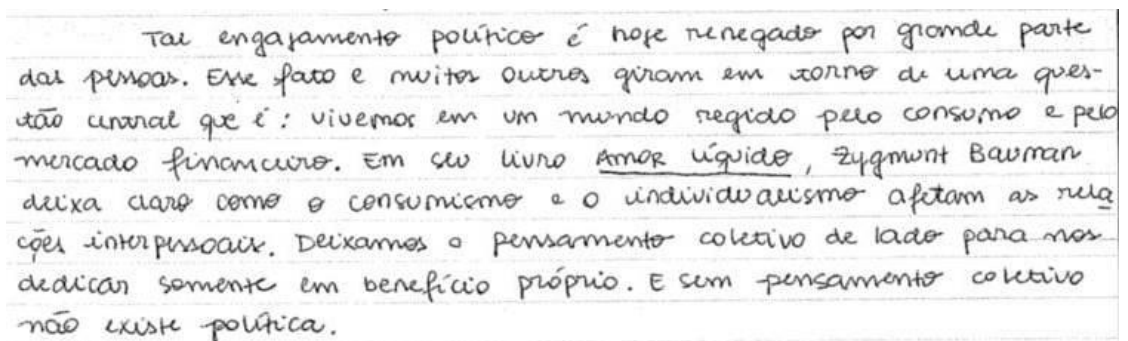 Tal engajamento político é hoje renegado por grande parte
das pessoas. Esse fato e muitos outros giram em torno de uma ques-
tão central que é: vivemos em um mundo regido pelo consumo e pelo
mercado financeiro. Em seu livro Amor Líquido, Zygmunt Bauman
deixa claro como o consumismo e o individualismo afetam as rela
ções interpessoais. Deixamos o pensamento coletivo de lado para nos
dedicar somente em benefício próprio. E sem pensamento coletivo
não existe política.